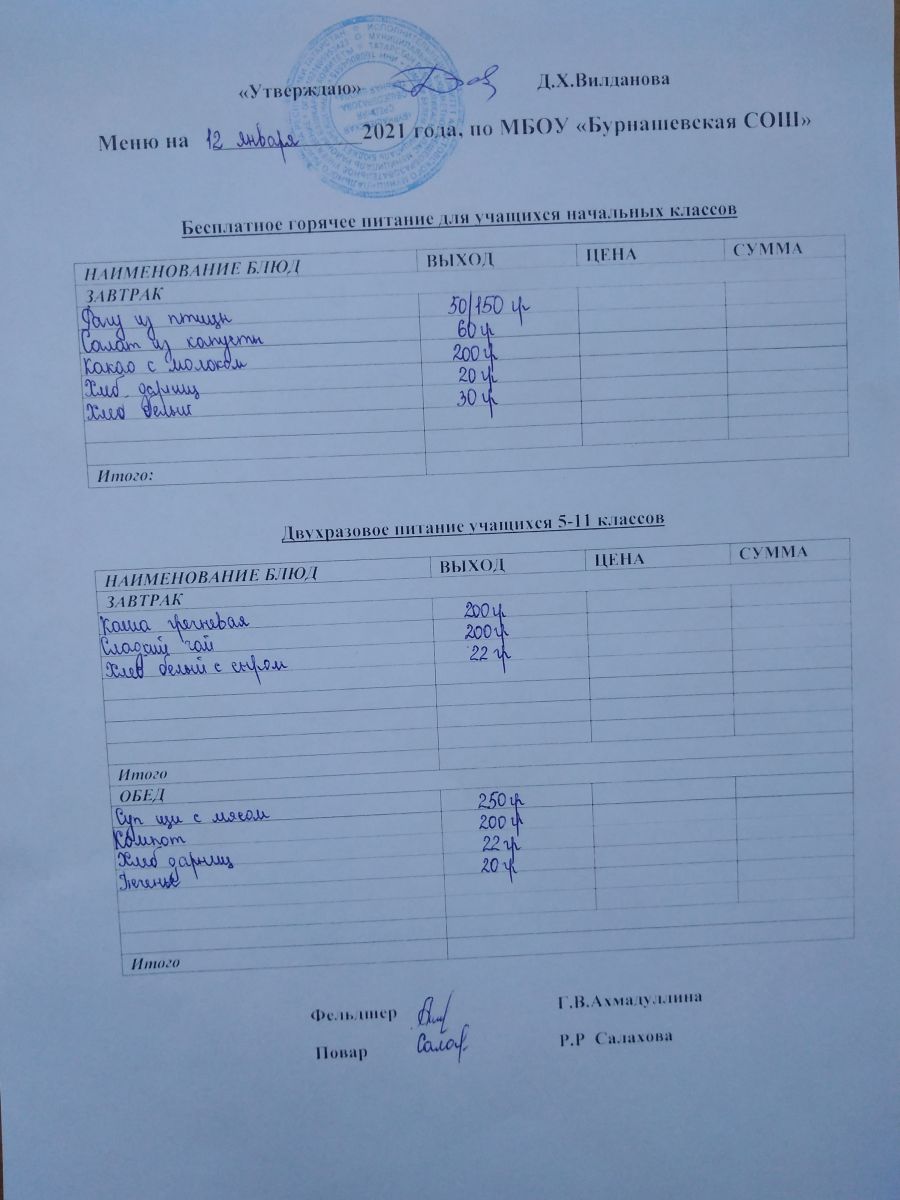 «Утверждаю» Д.Х.Вилданова
Меню на 12 января 2021 года, по МБОУ «Бурнашевская СОШ»
Бесплатное горячее питание для учащихся начальных классов
НАИМЕНОВАНИЕ БЛЮД ВЫХОД ЦЕНА СУММА
ЗАВТРАК
из птицы 50/150 гр
Салат из капусты 60 гр
Какао с молоком 200 гр
Хлеб дарниц 20 гр
Хлеб белый 30 гр
Итого:
Двухразовое питание учащихся 5-11 классов
НАИМЕНОВАНИЕ БЛЮД ВЫХОД ЦЕНА СУММА
ЗАВТРАК
Каша гречневая 200 гр
Сладкий чай 200 гр
Хлеб белый с сыром 22 гр
Итого
ОБЕД
Суп щи с мясом 250 гр
Компот 200 гр
Хлеб дарниц 22 гр
Печенье 20 гр
Итого
Фельдшер Г.В.Ахмадуллина
Повар Р.Р Салахова